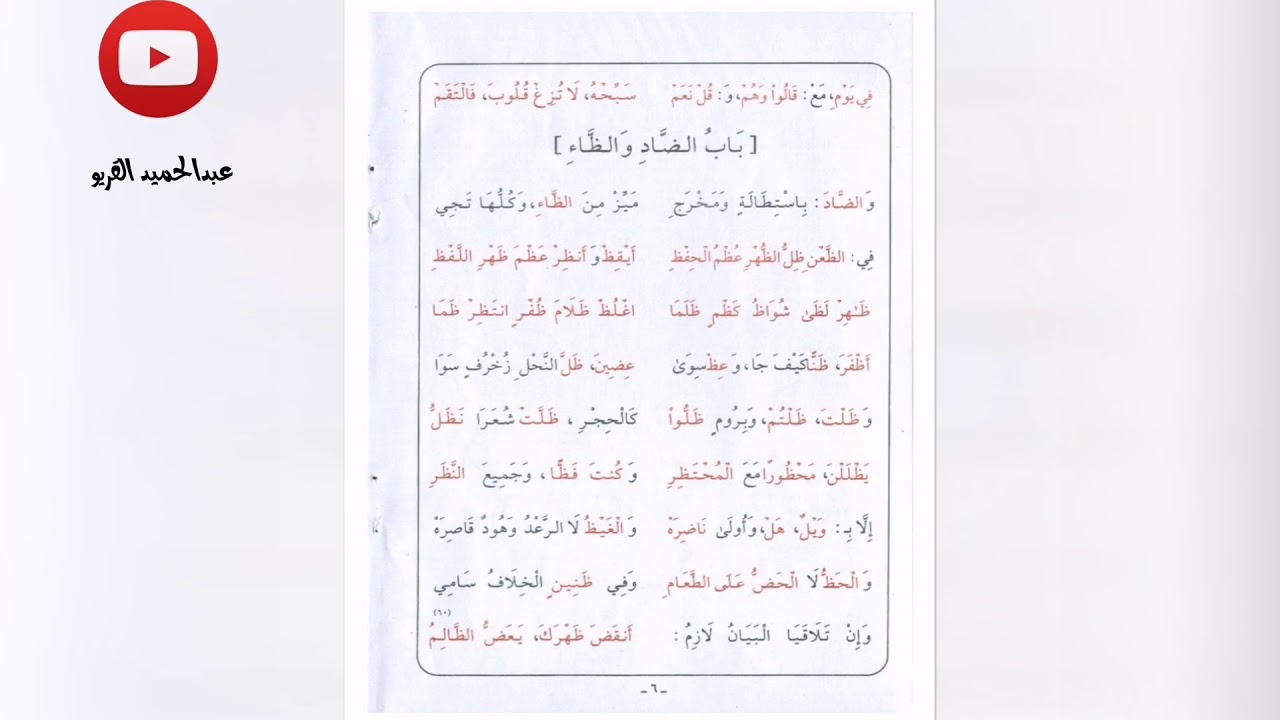 عبدالحميد القريو
فِي يَوْمِ، مَعْ: قَالُواْ وَهُمْ، وَ: قُلْ نَعَمْ سَبِّحْهُ، لَا تُزِغْ قُلُوبَ، فَالْتَقَمْ
[بَابُ الضَّادِ وَالظَّاءِ]
وَالضَّادَ: بِاسْتِطَالَةٍ وَمَخْرَجِ مَيِّزْ مِنَ الظَّاءِ، وَكُلُّهَا تَجِي
فِي: الظَّعْنِ ظِلُّ الظُّهْرِ عُظْمُ الْحِفْظِ أَيْقِظْ وَأَنظِرْ عَظْمَ ظَهْرِ اللَّفْظِ
ظَاهِرْ لَظَىٰ شُوَاظُ كَظْمٍ ظَلَمَا اغْلُظْ ظَلَامَ ظُفْرٍ انتَظِرْ ظَمَا
أَظْفَرَ، ظَنًّا كَيْفَ جَا، وَعِظْ سِوَىٰ عِضِينَ، ظَلَّ النَّحْلِ زُخْرُفٍ سَوَا
وَظَلْتَ، ظَلْتُمْ، وَبِرُومٍ ظَلُّواْ كَالْحِجْرِ، ظَلَّتْ شُعَرَا نَظَلُّ
يَظْلَلْنَ، مَحْظُورًا مَعَ الْمُحْتَظِرِ وَكُنتَ فَظًّا، وَجَمِيعَ النَّظَرِ
إِلَّا بِـ: وَيْلٌ، هَلْ، وَأُولَىٰ نَاضِرَهْ وَالْغَيْظُ لَا الرَّعْدُ وَهُودٌ قَاصِرَهْ
وَالْحَظُّ لَا الْحَضُّ عَلَى الطَّعَامِ وَفِي ظَنِينٍ الْخِلَافُ سَامِي
وَإِنْ تَلَاقَيَا الْبَيَانُ لَازِمُ: أَنقَضَ ظَهْرَكَ، يَعَضُّ الظَّالِمُ (٦٠)
ـ ٦ ـ